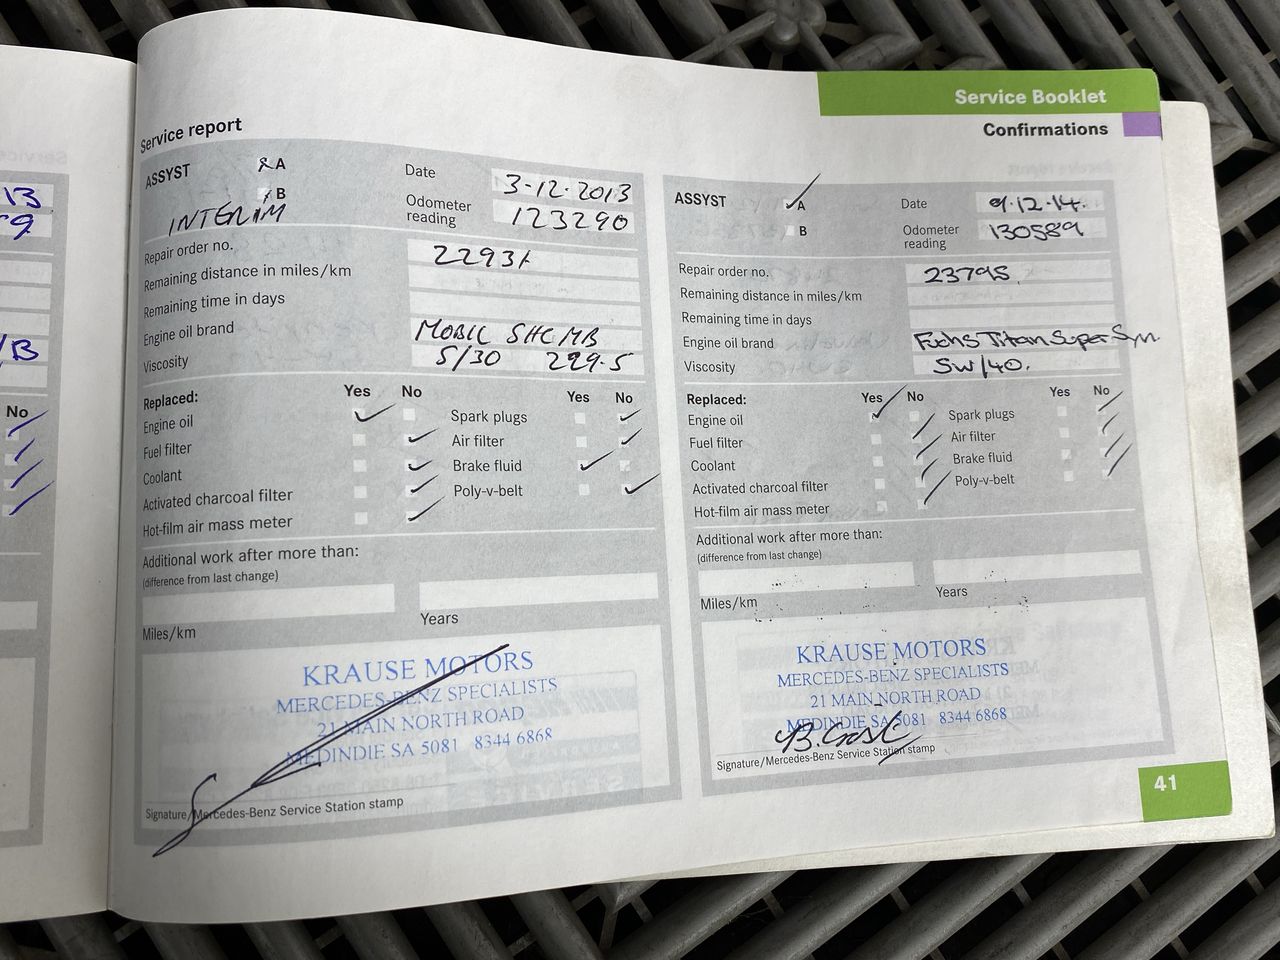 Service Booklet
Confirmations
13
9
/B
No
Service report
ASSYST
A
B
INTERIM
Date 3-12-2013
Odometer reading 123290
Repair order no. 22931
Remaining distance in miles/km
Remaining time in days
Engine oil brand MOBIL SHC MB
Viscosity 5/30 229.5
Replaced: Yes No Yes No
Engine oil Spark plugs
Fuel filter Air filter
Coolant Brake fluid
Activated charcoal filter Poly-v-belt
Hot-film air mass meter
Additional work after more than:
(difference from last change)
Miles/km Years
KRAUSE MOTORS
MERCEDES-BENZ SPECIALISTS
21 MAIN NORTH ROAD
MEDINDIE SA 5081 8344 6868
Signature/Mercedes-Benz Service Station stamp
ASSYST
A
B
Date 9.12.14.
Odometer reading 130589
Repair order no. 23795
Remaining distance in miles/km
Remaining time in days
Engine oil brand Fuchs Titan Super Syn.
Viscosity 5W/40.
Replaced: Yes No Yes No
Engine oil Spark plugs
Fuel filter Air filter
Coolant Brake fluid
Activated charcoal filter Poly-v-belt
Hot-film air mass meter
Additional work after more than:
(difference from last change)
Miles/km Years
KRAUSE MOTORS
MERCEDES-BENZ SPECIALISTS
21 MAIN NORTH ROAD
MEDINDIE SA 5081 8344 6868
Signature/Mercedes-Benz Service Station stamp
41